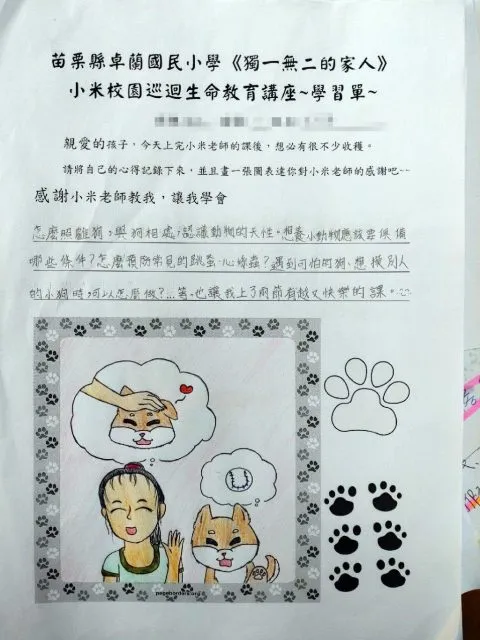 苗栗縣卓蘭國民小學《獨一無二的家人》
小米校園巡迴生命教育講座~學習單~
親愛的孩子，今天上完小米老師的課後，想必有很不少收穫。
請將自己的心得記錄下來，並且畫一張圖表達你對小米老師的感謝吧~~
感謝小米老師教我，讓我學會
怎麼照雛狗，與狗相處，認識動物的天性。想養小動物應該要俱備
哪些條件？怎麼預防常見的跳蚤、心絲蟲？遇到可怕的狗、想摸別人
的小狗時可以怎麼做？...等。也讓我上了兩節有趣又快樂的課。
pageborders.org